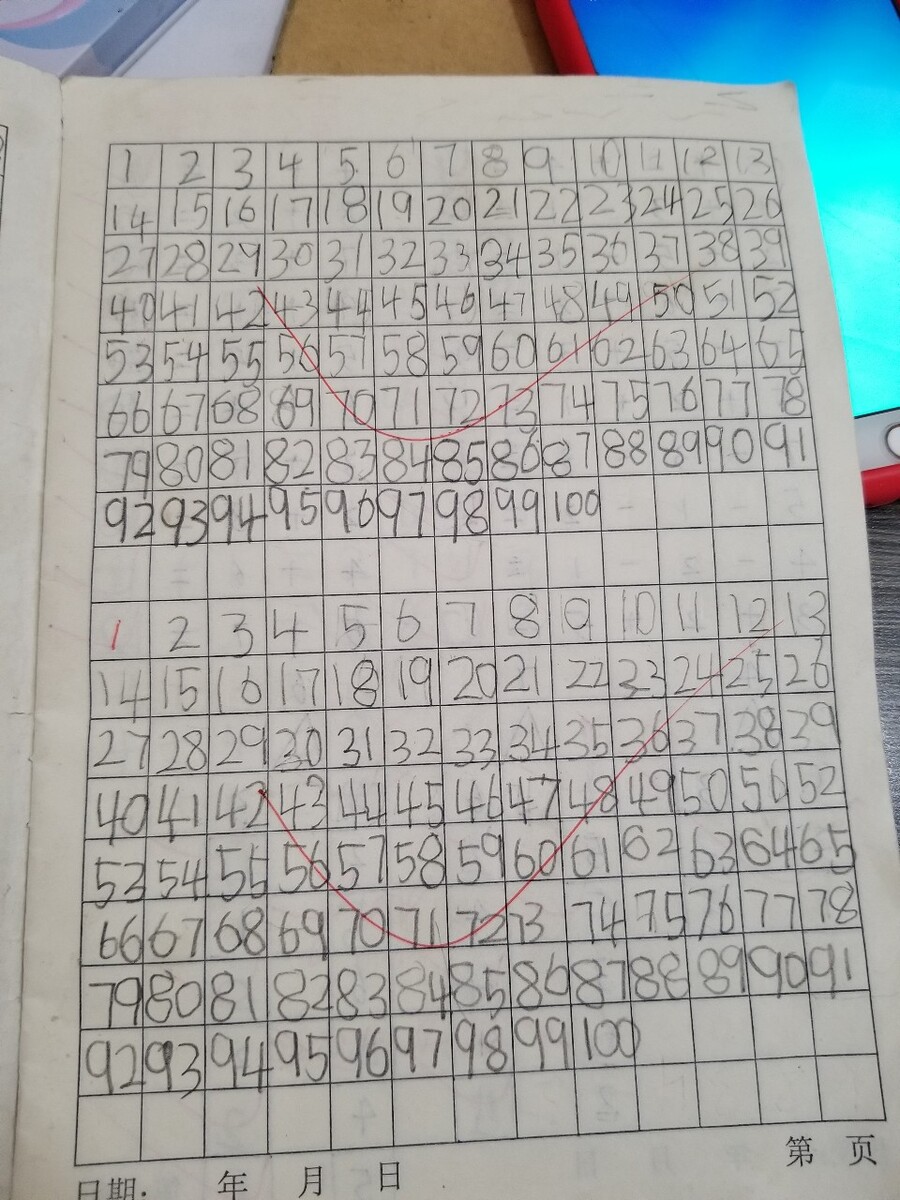 1 2 3 4 5 6 7 8 9 10 11 12 13
14 15 16 17 18 19 20 21 22 23 24 25 26
27 28 29 30 31 32 33 34 35 36 37 38 39
40 41 42 43 44 45 46 47 48 49 50 51 52
53 54 55 56 57 58 59 60 61 62 63 64 65
66 67 68 69 70 71 72 73 74 75 76 77 78
79 80 81 82 83 84 85 86 87 88 89 90 91
92 93 94 95 96 97 98 99 100
1 2 3 4 5 6 7 8 9 10 11 12 13
14 15 16 17 18 19 20 21 22 23 24 25 26
27 28 29 30 31 32 33 34 35 36 37 38 39
40 41 42 43 44 45 46 47 48 49 50 56 52
53 54 55 56 57 58 59 60 61 62 63 64 65
66 67 68 69 70 71 72 73 74 75 76 77 78
79 80 81 82 83 84 85 86 87 88 89 90 91
92 93 94 95 96 97 98 99 100
第 页
日期: 年 月 日